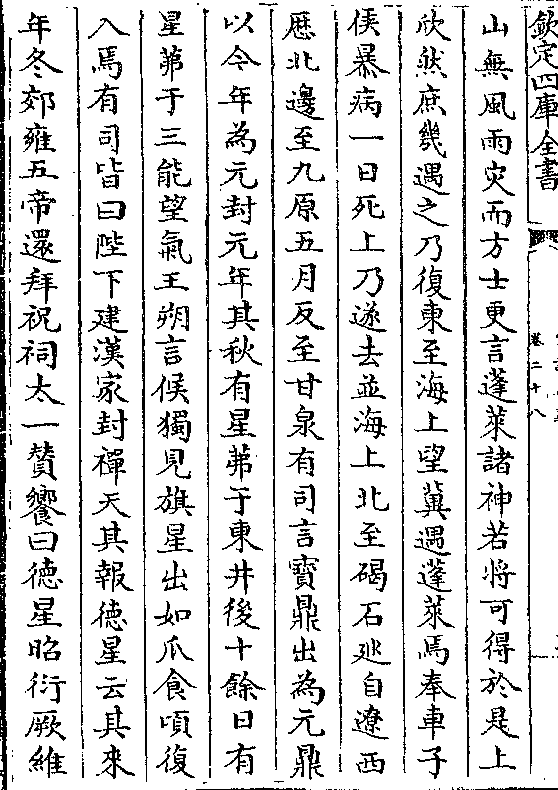 欽定四庫全書
卷二十八
山無風雨灾而方士更言蓬萊諸神若將可得於是上
欣然庶幾遇之乃復東至海上望冀遇蓬萊焉奉車子
侯暴病一日死上乃遂去並海上北至碣石廵自遼西
歴北邊至九原五月反至甘泉有司言寳鼎出為元鼎
以今年為元封元年其秋有星茀于東井後十餘日有
星茀于三能望氣王朔言候獨見旗星出如瓜食頃復
入焉有司皆曰陛下建漢家封禪天其報徳星云其來
年冬郊雍五帝還拜祝祠太一賛饗曰徳星昭衍厥維